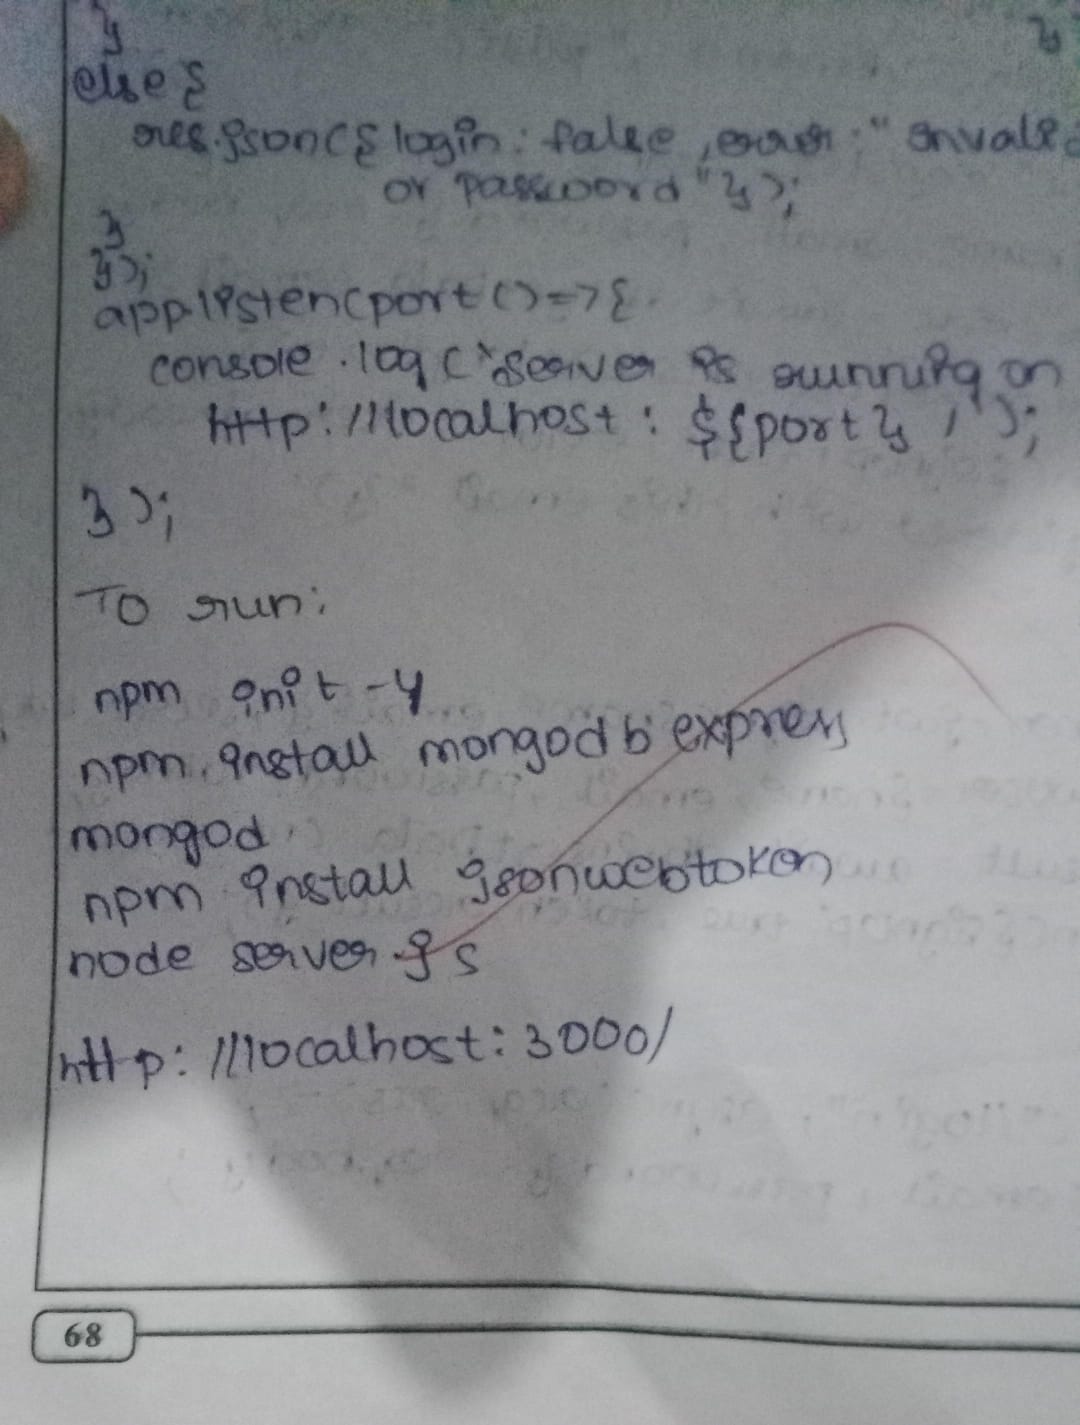 }
}
else {
res.json({ login: false, error: "invalid
or password" });
}
});
app.listen(port () => {
console.log(`server is running on
http://localhost: ${port} /`);
});
To run:
npm init -y
npm install mongodb express
mongod
npm install jsonwebtoken
node server js
http://localhost:3000/
68